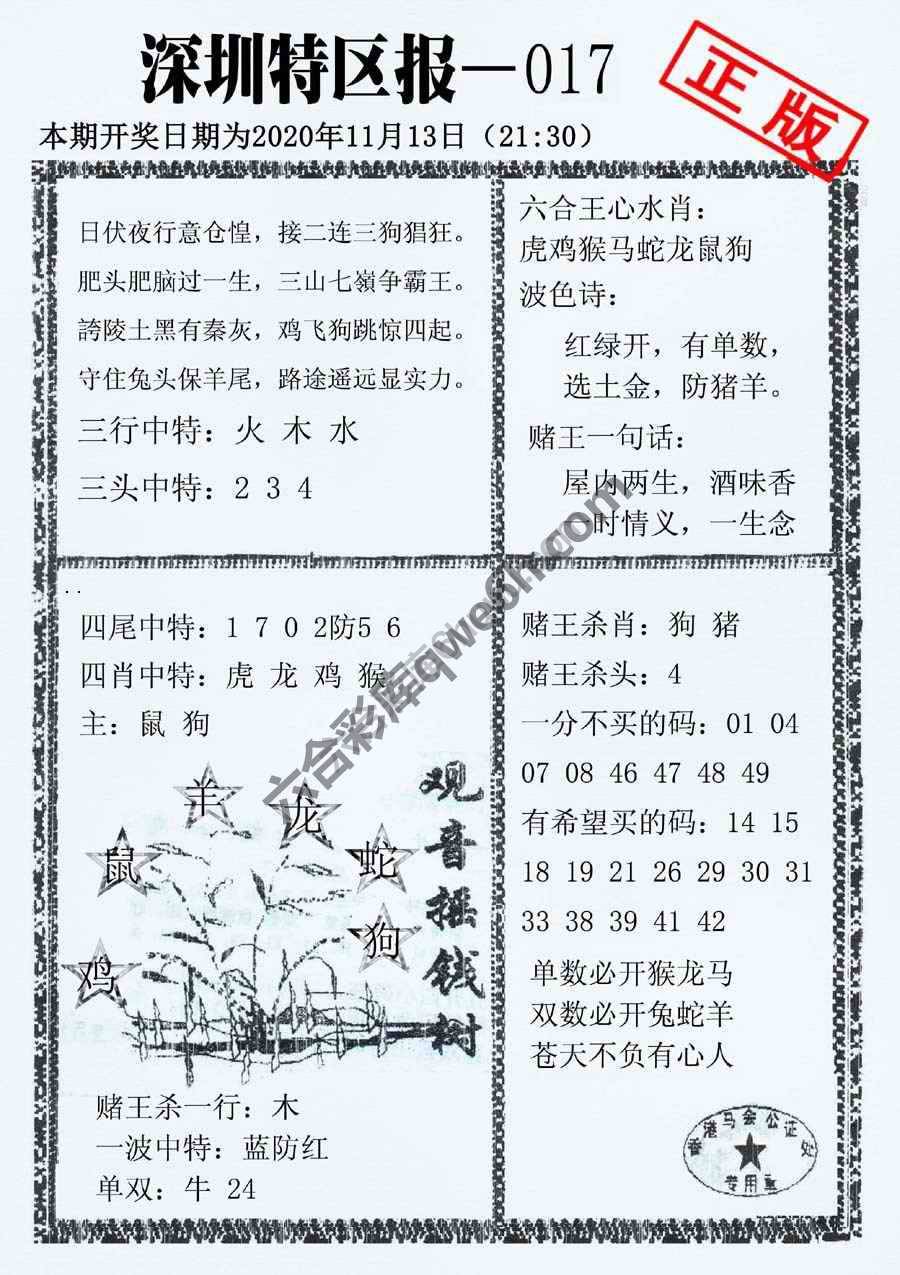 深圳特区报—017
正版
本期开奖日期为2020年11月13日（21:30）
日伏夜行意仓惶，接二连三狗猖狂。
肥头肥脑过一生，三山七嶺争霸王。
誇陵土黑有秦灰，鸡飞狗跳惊四起。
守住兔头保羊尾，路途遥远显实力。
三行中特：火 木 水
三头中特：2 3 4
六合王心水肖：
虎鸡猴马蛇龙鼠狗
波色诗：
红绿开，有单数，
选土金，防猪羊。
赌王一句话：
屋内两生，酒味香
一时情义，一生念
四尾中特：1 7 0 2防5 6
四肖中特：虎 龙 鸡 猴
主：鼠 狗
羊
龙
鼠
蛇
狗
鸡
观音摇钱树
赌王杀一行：木
一波中特：蓝防红
单双：牛 24
赌王杀肖：狗 猪
赌王杀头：4
一分不买的码：01 04
07 08 46 47 48 49
有希望买的码：14 15
18 19 21 26 29 30 31
33 38 39 41 42
单数必开猴龙马
双数必开兔蛇羊
苍天不负有心人
香港马会公证处
专用章
六合彩库qwe6h.com